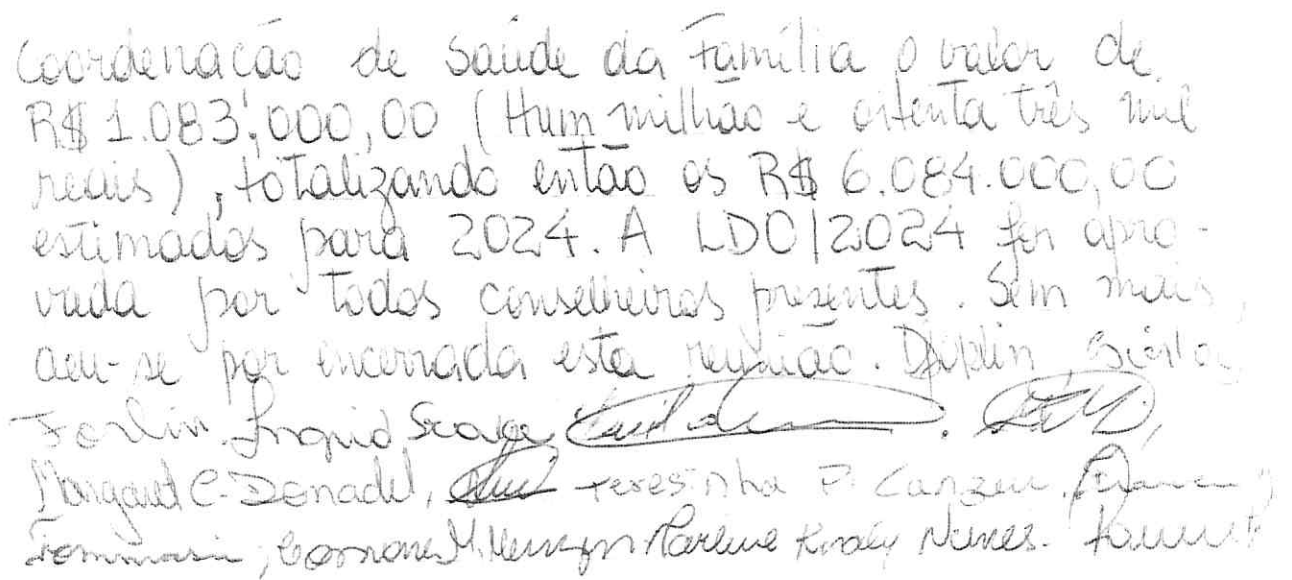 Coordenação de Saúde da Família o valor de
R$ 1.083.000,00 (Hum milhão e oitenta três mil
reais), totalizando então os R$ 6.084.000,00
estimados para 2024. A LDO/2024 foi apro-
vada por todos conselheiros presentes. Sem mais,
deu-se por encerrada esta reunião.
Forlin. Ingrid
Margaret C. Donadel, Teresinha P.
Tommasi, Marlene Nunes.